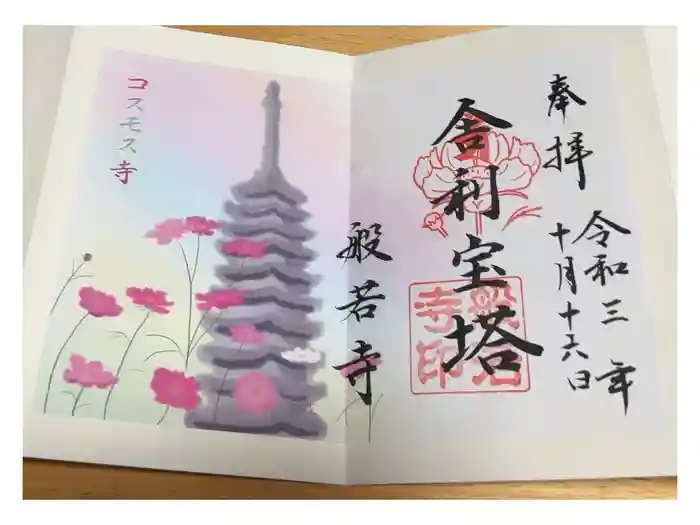 奉拝
令和三年
十月十六日
舎利宝塔
般若寺
般若寺印
コスモス寺